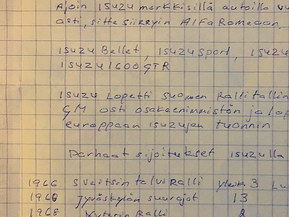 Ajoin ISUZU merkkisillä autoilla vu
osti, sitte siirryin Alfa Romeoon
ISUZU Bellet, ISUZU Sport, ISUZU
ISUZU 1600 GTR
ISUZU Lopetti Suomen Rallitallin
GM osti osakeenimmistön ja lop
europpaan isuzujen tuonnin
Parhaat sijoitukset isuzulla
1966 Sveitsin talviralli yleis 3 Lu
1968 Jyväskylän suurajot 13
1968 Yyterin Ralli 8